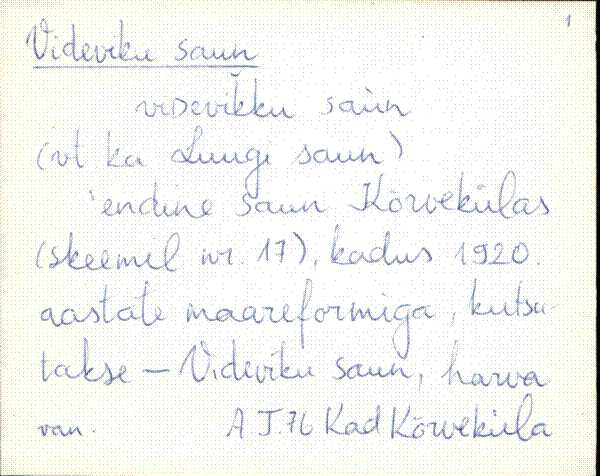 1
Videviku saun
viDevikku saùn
(vt ka Luugi saun)
'endine saun Kõrvekülas
(skeemil nr. 17), kadus 1920.
aastate maareformiga, kutsu-
takse – Videviku saun, harva
van. A.J. 76 Kad Kõrveküla